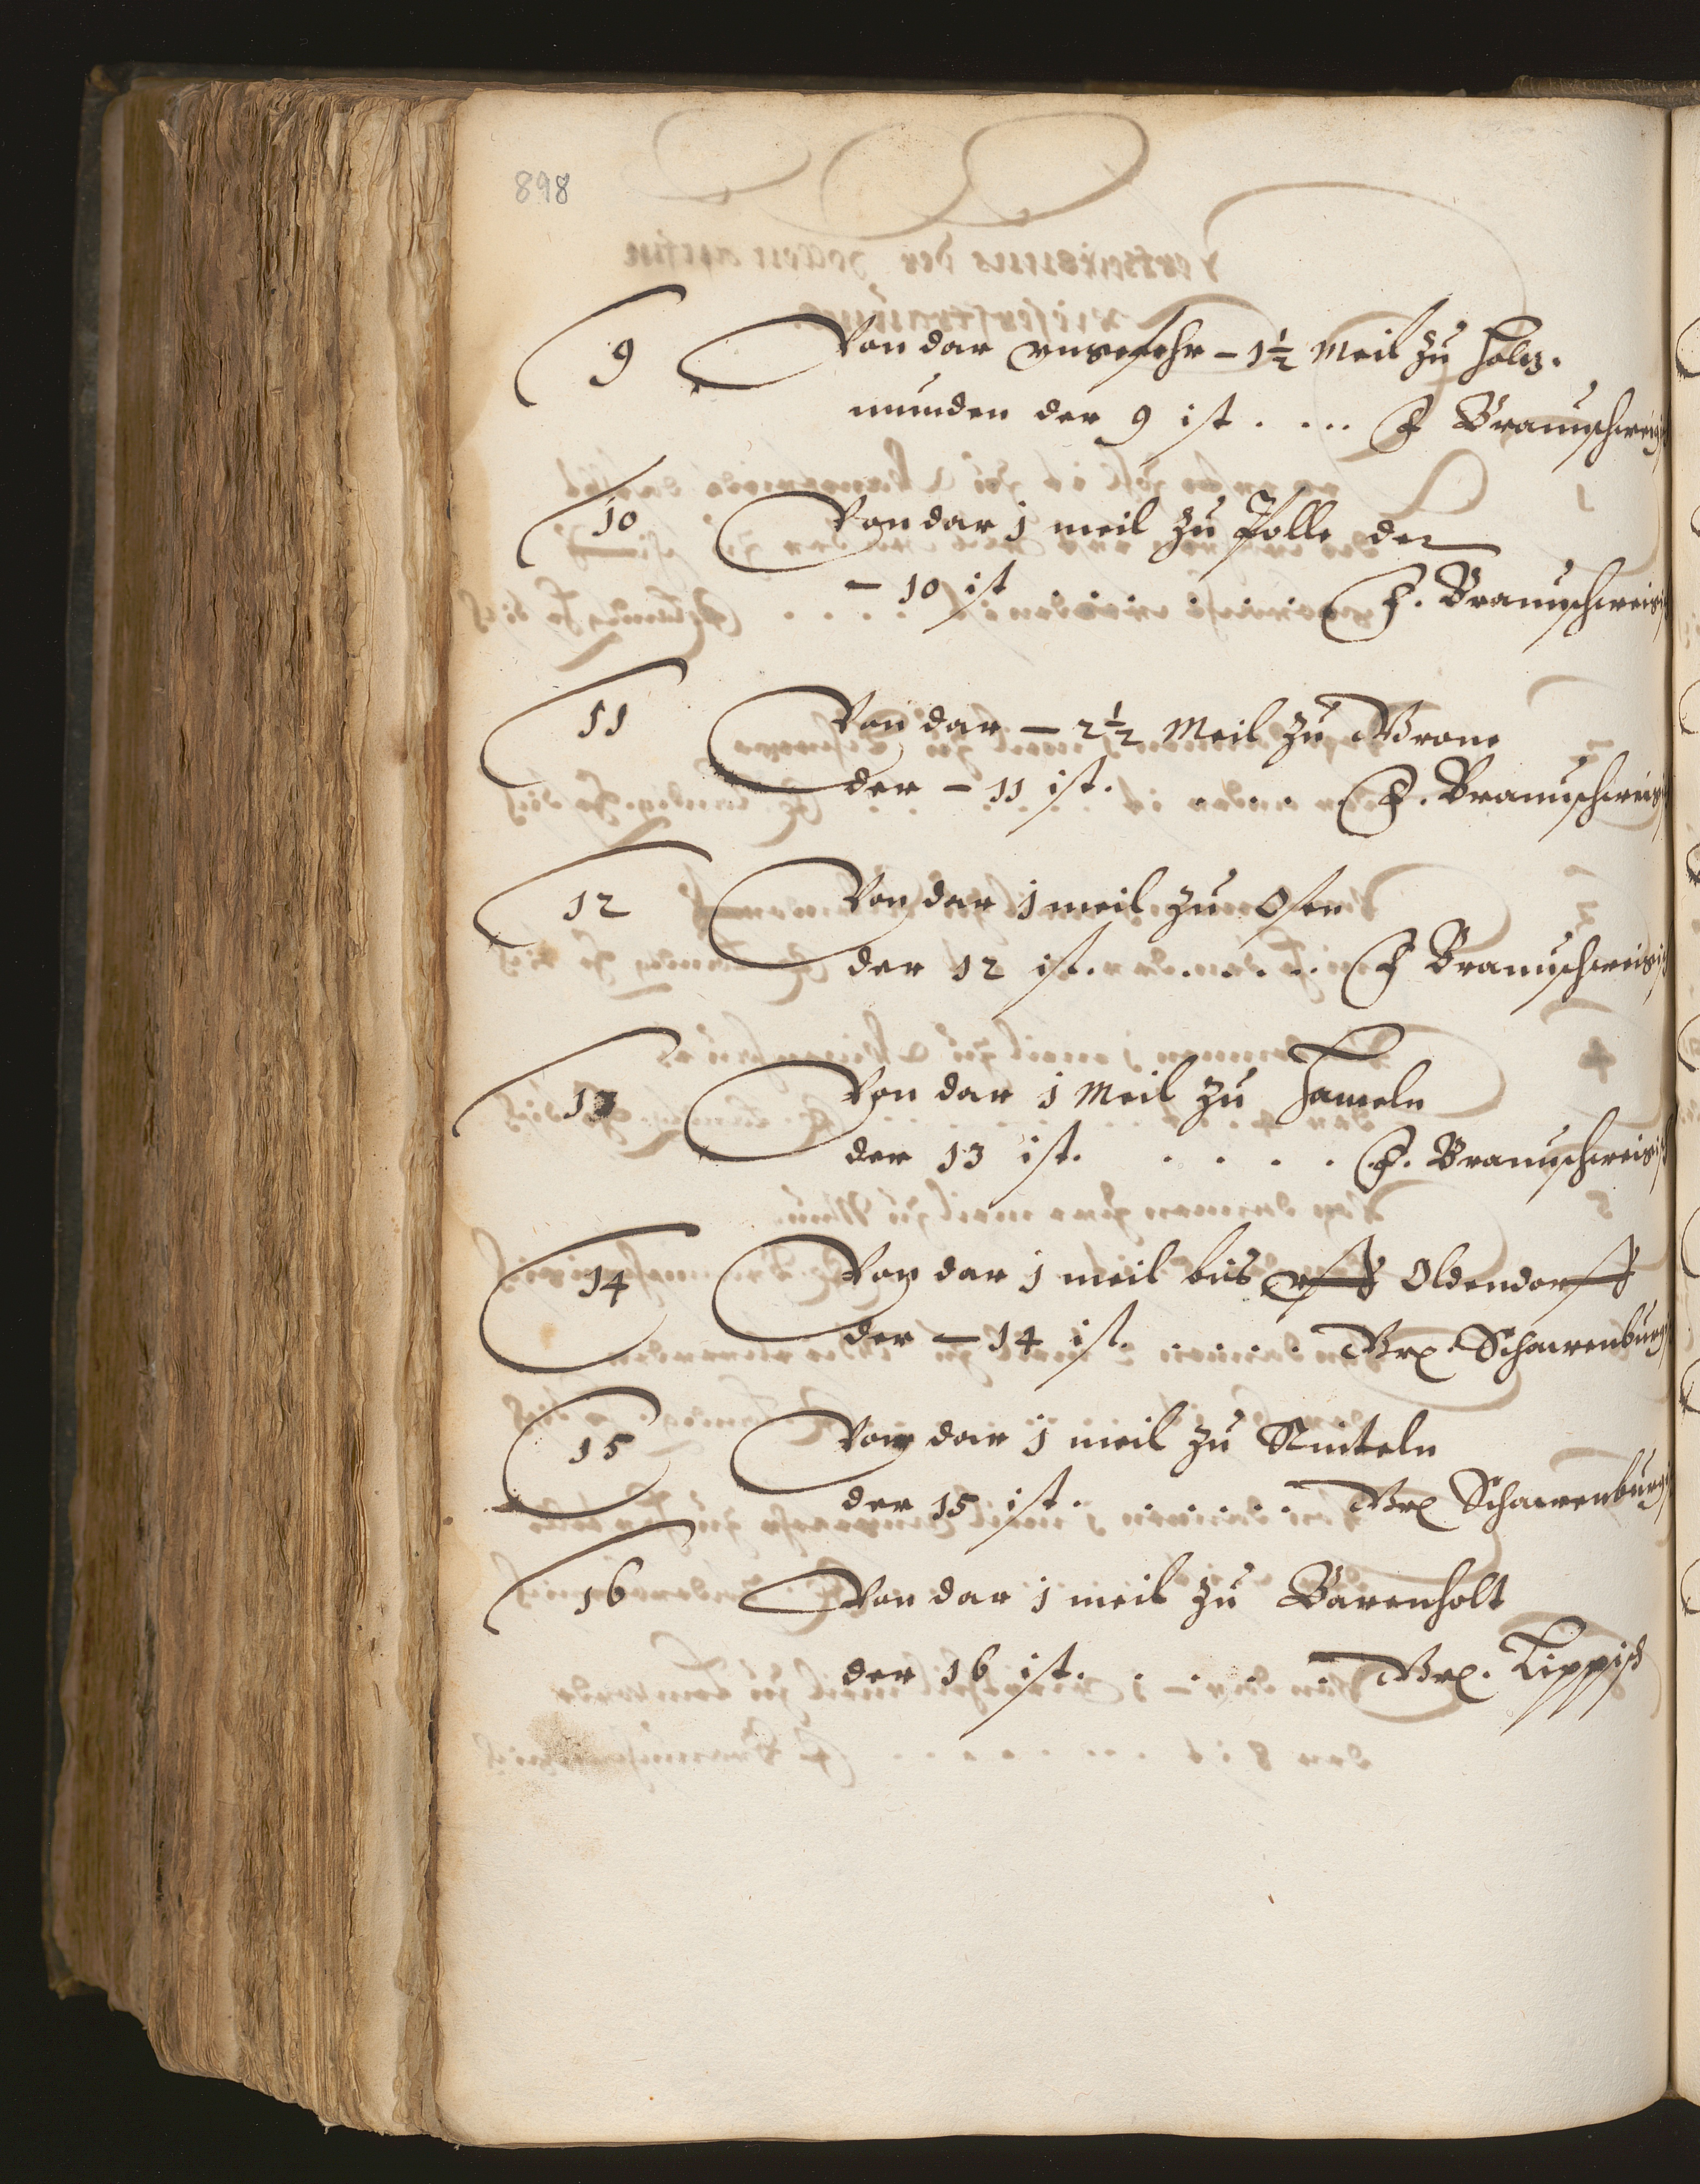 898
9 Von dar vngefehr - 1½ Meil zu Holtz-
munden der 9 ist . ... F Braunschweig
10 Von dar j meil zu Polle der
- 10 ist . . . . . . F. Braunschweigisch
11 Von dar - 2½ Meil zu Grone
der - 11 ist. . . . . F. Braunschweigisch
12 Von dar j meil zu Osen
der 12 ist. . . . . . . F Braunschweigisch
13 Von dar j Meil zu Hameln
der 13 ist. . . . . . F. Braunschweigisch
14 Von dar j meil bis vff Oldendorff
der - 14 ist. . . . . . Gr. Schawenburg
15 Von dar j meil zu Rinteln
der 15 ist. . . . . . Gr. Schawenburg
16 Von dar j meil zu Varenholt
der 16 ist. . . . . . Gr. Lippisch